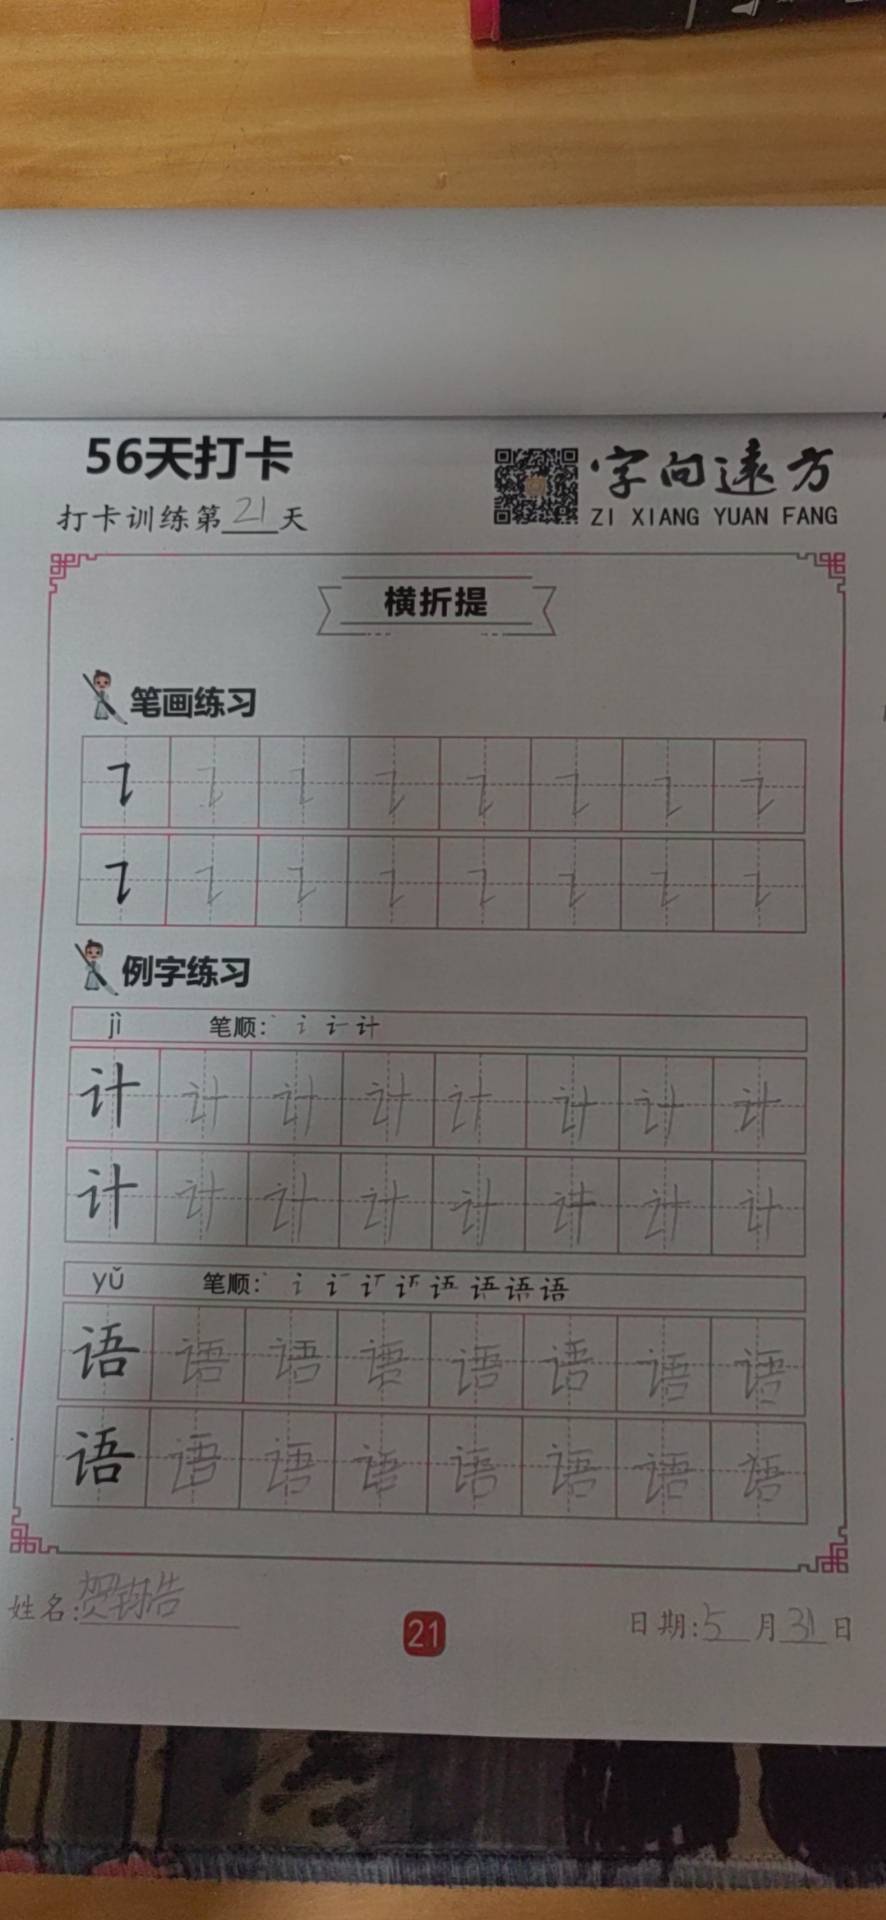 56天打卡
字向遠方
打卡训练第21天
ZI XIANG YUAN FANG
横折提
笔画练习
例字练习
jì 笔顺: 丶 讠 计
计 计 计 计 计 计 计 计
计 计 计 计 计 计 计 计
yǔ 笔顺:
语 语 语 语 语 语 语 语
语 语 语 语 语 语 语 语
姓名:贺
21
日期:5月31日